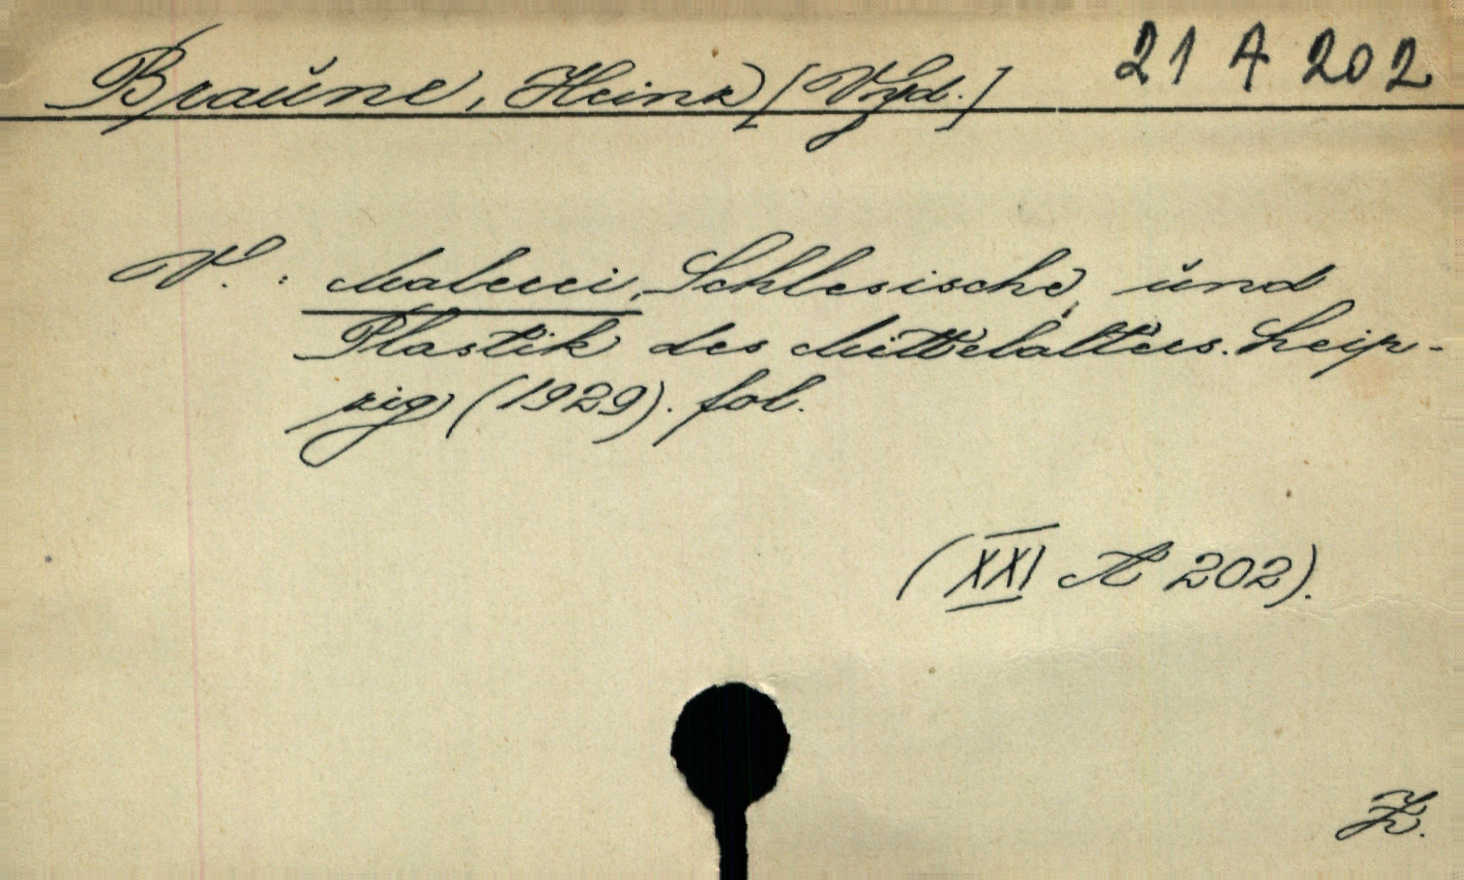 Braŭne, Heinz [Vyd.] 21 A 202
V.: Malerei, Schlesische, ŭnd
Plastik des Mittelalters. Leip-
zig (1929). fol.
(XXI A 202).
Z.